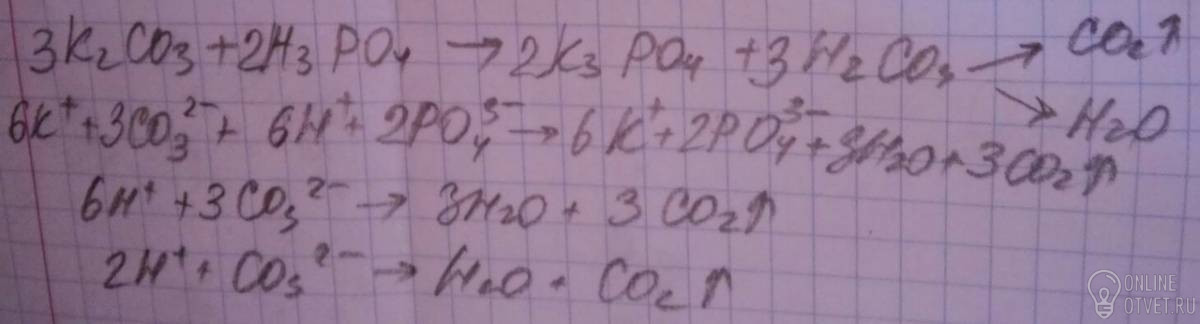 3K₂CO₃ + 2H₃PO₄ → 2K₃PO₄ + 3H₂CO₃ → CO₂↑
→ H₂O
6K⁺ + 3CO₃²⁻ + 6H⁺ + 2PO₄³⁻ → 6K⁺ + 2PO₄³⁻ + 3H₂O + 3CO₂↑
6H⁺ + 3CO₃²⁻ → 3H₂O + 3CO₂↑
2H⁺ + CO₃²⁻ → H₂O + CO₂↑
ONLINE
OTVET.RU